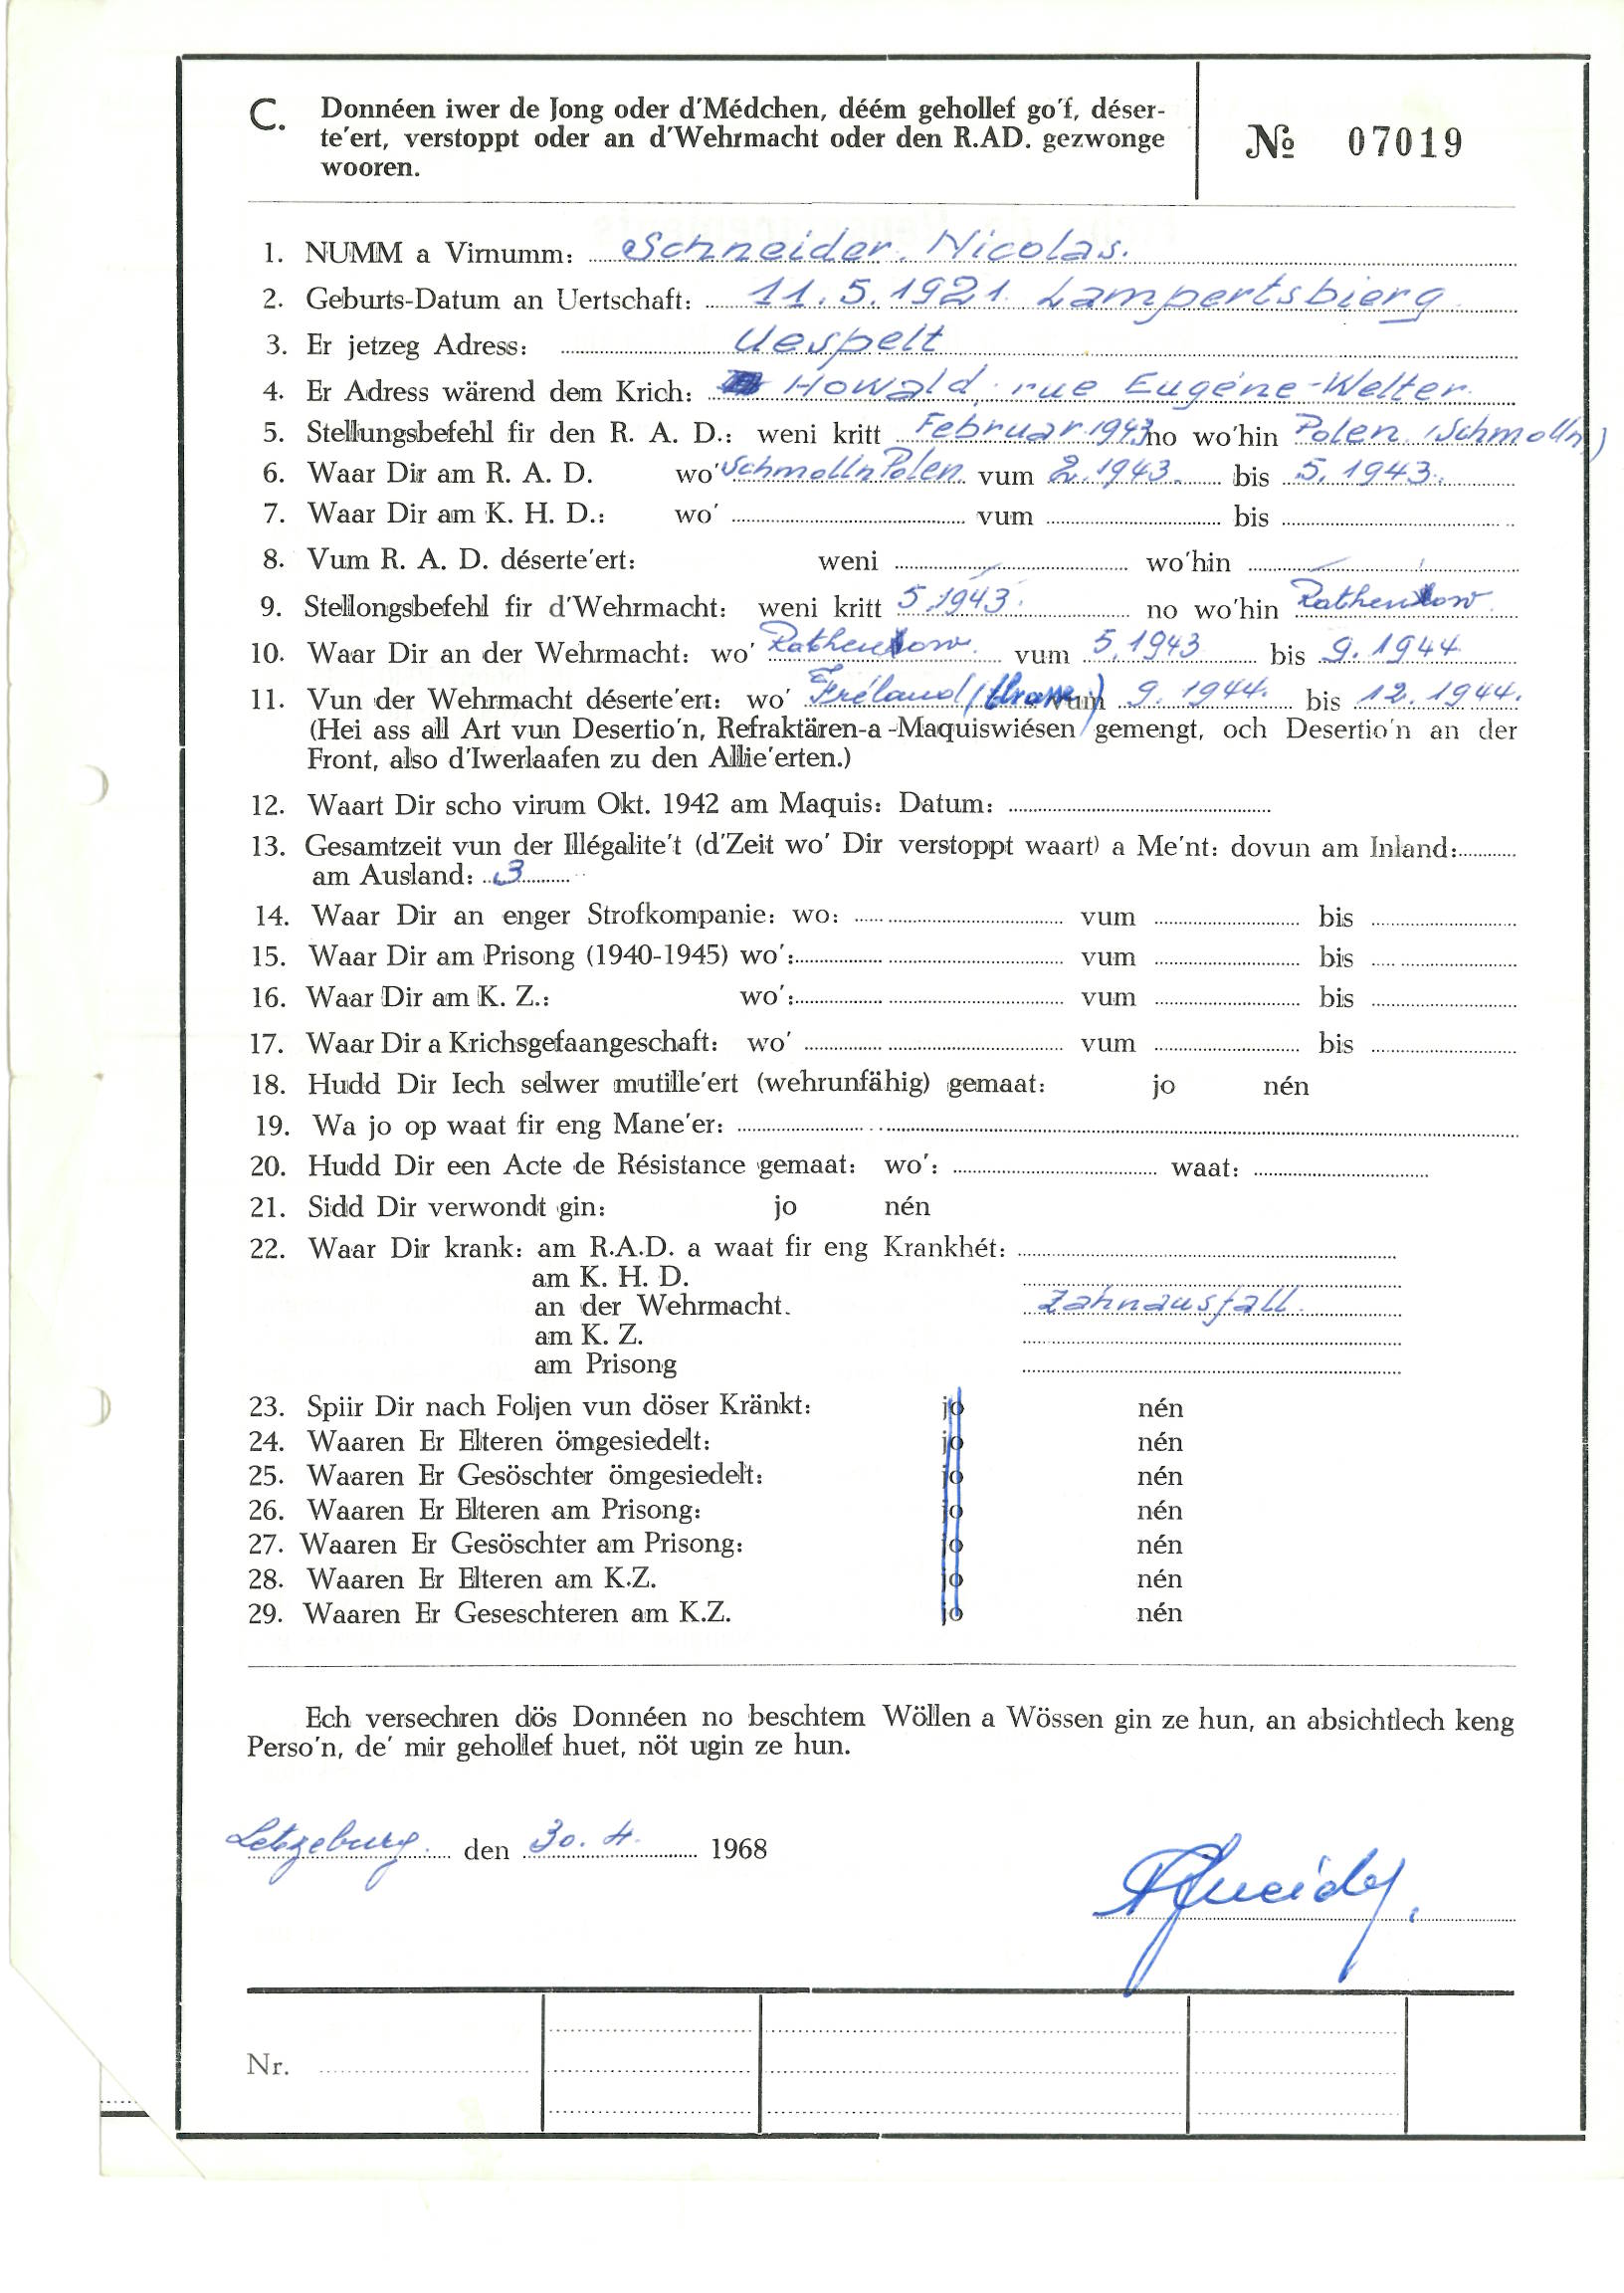 C. Donnéen iwer de Jong oder d'Médchen, déém gehollef go'f, déser-
te'ert, verstoppt oder an d'Wehrmacht oder den R.AD. gezwonge
wooren.
№ 07019
1. NUMM a Virnumm: Schneider. Nicolas.
2. Geburts-Datum an Uertschaft: 11. 5. 1921. Lampertsbierg
3. Er jetzeg Adress: Uespelt
4. Er Adress wärend dem Krich: Howald, rue Eugéne-Welter.
5. Stellungsbefehl fir den R. A. D.: weni kritt Februar 1943 no wo'hin Polen (Schmolln)
6. Waar Dir am R. A. D. wo' Schmolln Polen. vum 2. 1943. bis 5. 1943.
7. Waar Dir am K. H. D.: wo' vum bis
8. Vum R. A. D. déserte'ert: weni wo'hin
9. Stellongsbefehl fir d'Wehrmacht: weni kritt 5.1943. no wo'hin Rathenow.
10. Waar Dir an der Wehrmacht: wo' Rathenow. vum 5.1943 bis 9. 1944.
11. Vun der Wehrmacht déserte'ert: wo' Fréland vum 9. 1944. bis 12. 1944.
(Hei ass all Art vun Desertio'n, Refraktären-a-Maquiswiésen gemengt, och Desertio'n an der
Front, also d'Iwerlaafen zu den Allie'erten.)
12. Waart Dir scho virum Okt. 1942 am Maquis: Datum:
13. Gesamtzeit vun der Illégalite't (d'Zeit wo' Dir verstoppt waart) a Me'nt: dovun am Inland:
am Ausland: 3
14. Waar Dir an enger Strofkompanie: wo: vum bis
15. Waar Dir am Prisong (1940-1945) wo': vum bis
16. Waar Dir am K. Z.: wo': vum bis
17. Waar Dir a Krichsgefaangeschaft: wo' vum bis
18. Hudd Dir Iech selwer mutille'ert (wehrunfähig) gemaat: jo nén
19. Wa jo op waat fir eng Mane'er:
20. Hudd Dir een Acte de Résistance gemaat: wo': waat:
21. Sidd Dir verwondt gin: jo nén
22. Waar Dir krank: am R.A.D. a waat fir eng Krankhét:
am K. H. D.
an der Wehrmacht. Zahnausfall.
am K. Z.
am Prisong
23. Spiir Dir nach Foljen vun döser Kränkt: jo nén
24. Waaren Er Elteren ömgesiedelt: jo nén
25. Waaren Er Gesöschter ömgesiedelt: jo nén
26. Waaren Er Elteren am Prisong: jo nén
27. Waaren Er Gesöschter am Prisong: jo nén
28. Waaren Er Elteren am K.Z. jo nén
29. Waaren Er Geseschteren am K.Z. jo nén
Ech versechren dös Donnéen no beschtem Wöllen a Wössen gin ze hun, an absichtlech keng
Perso'n, de' mir gehollef huet, nöt ugin ze hun.
Letzeburg. den 30. 4. 1968
Nr.